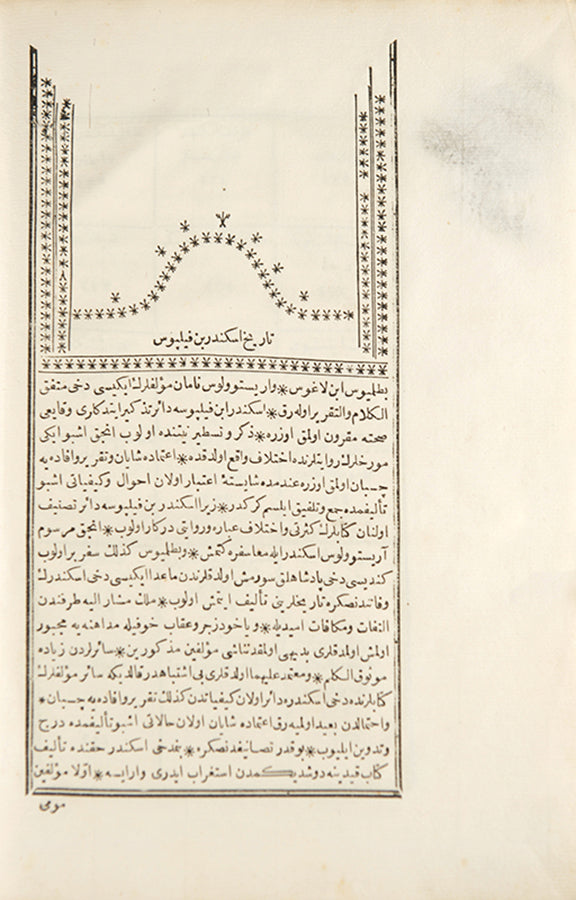 تاريخ اسكندر بن فيليپوس
بطلميوس ابن لاغوس * واريستوولوس نامان مؤلفلرك ايكيسى دخى متفق
الكلام والتقرير اوله رق * اسكندر ابن فيليپوسه دائر تذكير ايتدكارى وقايعى
صحته مقرون اولمق اوزره * ذكر وتسطير نيتنده اولوب انجق اشبو ايكى
مورخلرك روايتلرنده اختلاف واقع اولدقده * اعتماده شايان وتقرير وافاده يه
چسبان اولمق اوزره عندمده شايسته اعتبار اولان احوال وكيفياتى اشبو
تأليفمده جمع وتلفيق ايلسم كركدر * زيرا اسكندر بن فيليپوسه دائر تصنيف
اولنان كتابلرك كثرتى واختلاف عباره وروايتى دركار اولوب * انجق مرسوم
آريستوولوس اسكندر ايله معا سفره كتمش * وبطلميوس كذلك سفر بر اولوب
كنديسى دخى پادشاهلق سورمش اولدقلرندن ماعدا ايكيسى دخى اسكندرك
وفاتندنصكره تاريخلرينى تأليف ايتمش اولوب * ملك مشار اليه طرفندن
التفات ومكافات اميديله * وياخود زجر وعقاب خوفيله مداهنه يه مجبور
اولمش اولمدقلرى بديهى اولمقدنناشى مؤلفين مذكورين * سائرلردن زياده
موثوق الكلام * ومعتمد عليهما اولدقلرى بى اشتباهدر قالديكه سائر مؤلفلرك
كتابلرنده دخى اسكندره دائر اولان كيفياتدن كذلك تقرير وافاده يه چسبان *
واحتمالدن بعيد اولميه رق اعتماده شايان اولان حالاتى اشبو تأليفمده درج
وتدوين ايليوب * بوقدر تصانيفدنصكره * بنمدخى اسكندر حقنده تأليف
كتاب قيدينه دوشديكمدن استغراب ايدرى وار ايسه * اولا مؤلفين
مومى